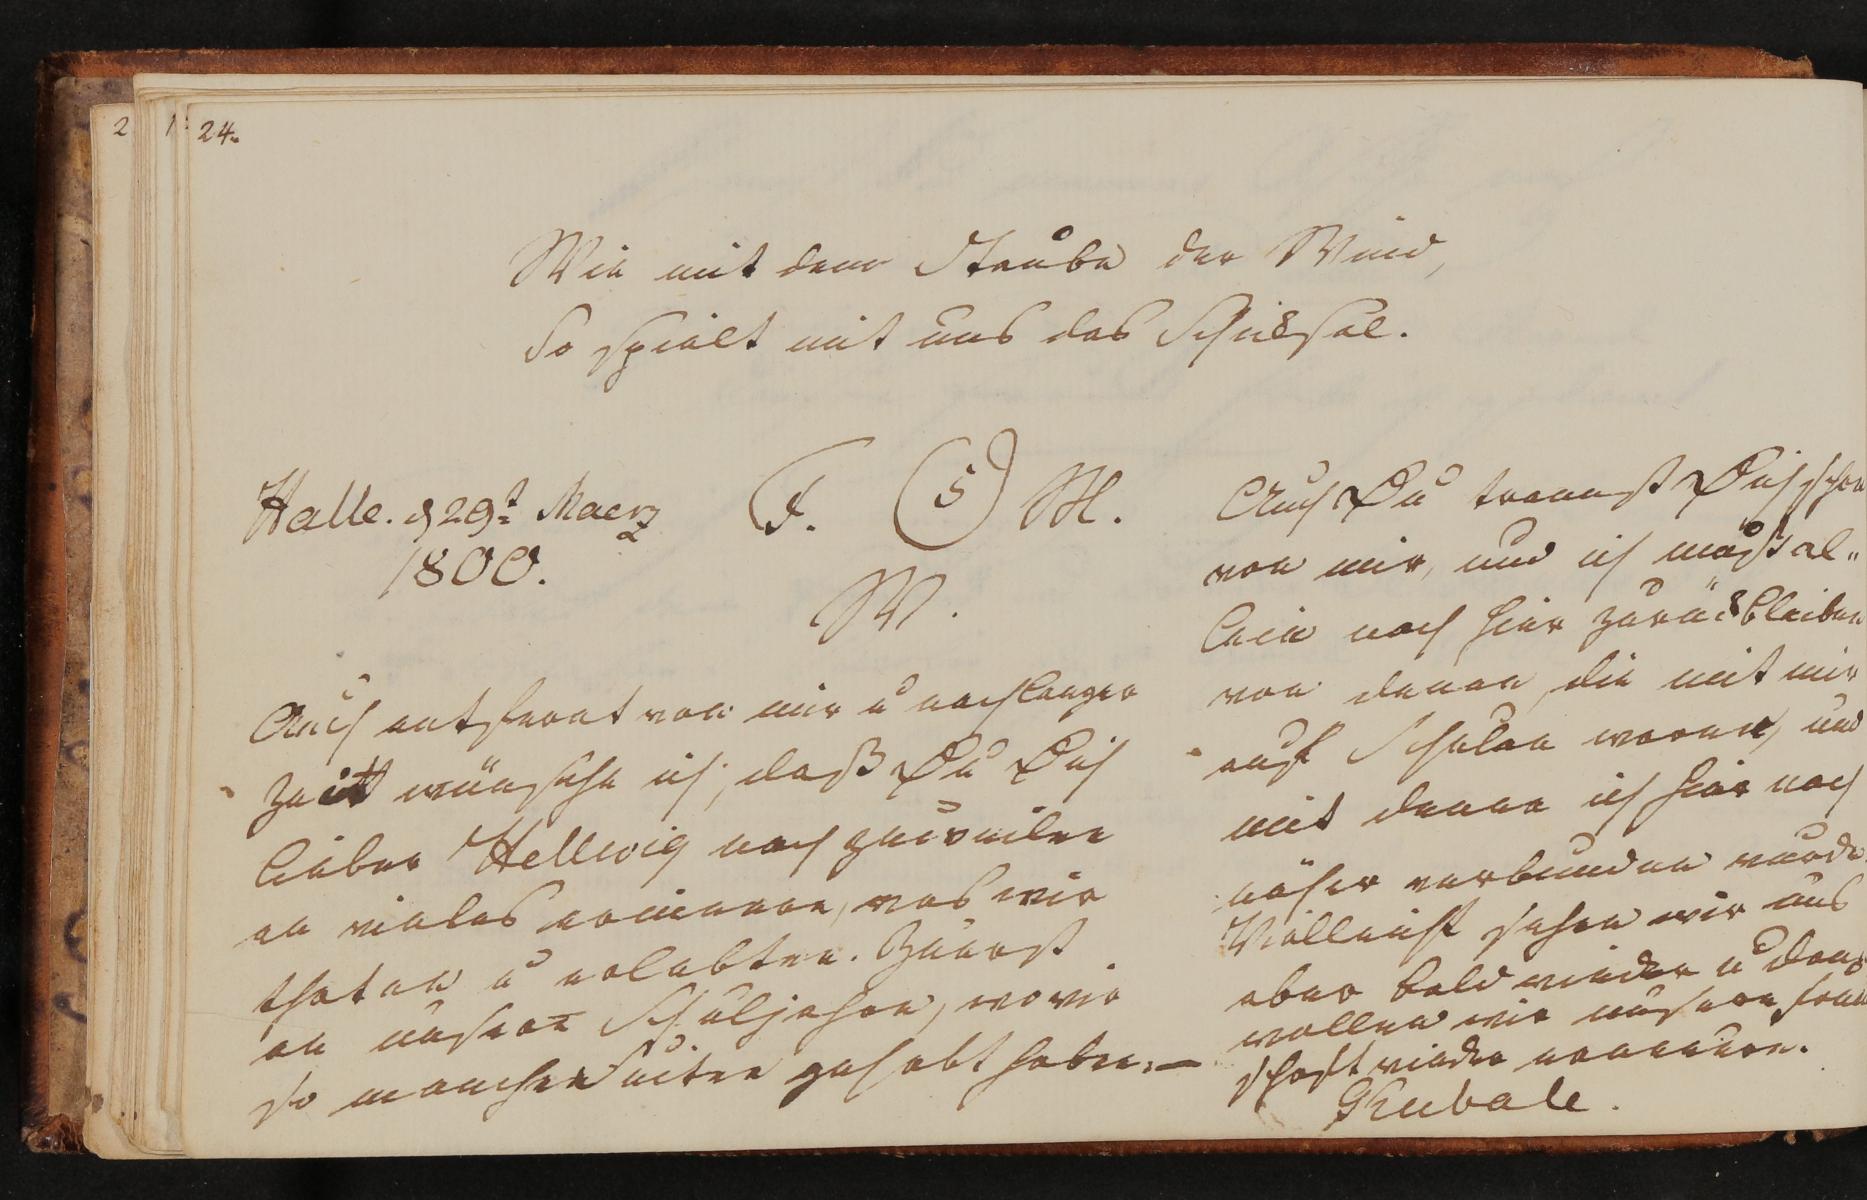 24.
Wie mit dem Staube der Wind,
So spielt mit uns das Schicksal.
Halle. d 29t Maerz
1800.
F. S M.
W.
Auch entfernt von mir u nach langer
Zeit wünsche ich, daß Du Dich
lieber Hellwig noch zuweilen
an vieles erinnere, was wir
thaten u erlebten. Zuerst
an unsere Schuljahre, wo wir
so manchen gehabt haben. —
Auch Du trennst Dich schon
von mir, und ich muß al„
lein noch hier zurück bleiben
von denen, die mit mir
auf Schulen waren, und
mit denen ich hier noch
näher verbunden wurde.
Vielleicht sehen wir uns
aber bald wieder u dann
wollen wir unsere Freund
schaft wieder erneuern.